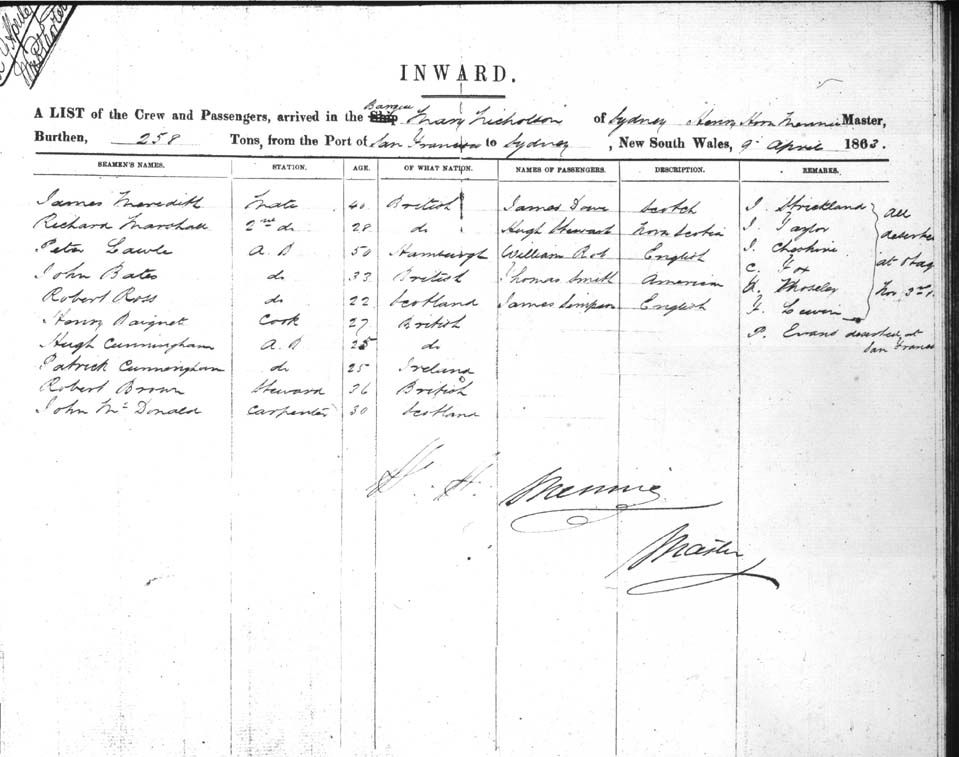 INWARD.
A LIST of the Crew and Passengers, arrived in the Ship Barque Mary Nicholson of Sydney Henry Horn Mennie Master,
Burthen, 258 Tons, from the Port of San Francisco to Sydney, New South Wales, 9 April 1863.
SEAMEN'S NAMES. STATION. AGE. OF WHAT NATION. NAMES OF PASSENGERS. DESCRIPTION. REMARKS.
James Meredith Mate 40 British James Dowe Scotch J. Strickland
Richard Marshall 2nd do 28 do Hugh Stewart Nova Scotia J. Taylor
Peter Lawle A. B 50 Hamburgh William Rob English J. Cheshire
John Bates do 33 British Thomas Smith American C. Fox
Robert Ross do 22 Scotland James Simpson English Moseley
Henry Cook 27 British F. Lewer
all
at
Nov. 3rd
Hugh Cunningham A. B 25 do P. Evans deserted at
San Franc
Patrick Cunningham do 25 Ireland
Robert Brown Steward 36 British
John Mc Donald Carpenter 30 Scotland
H. H. Mennie
Master